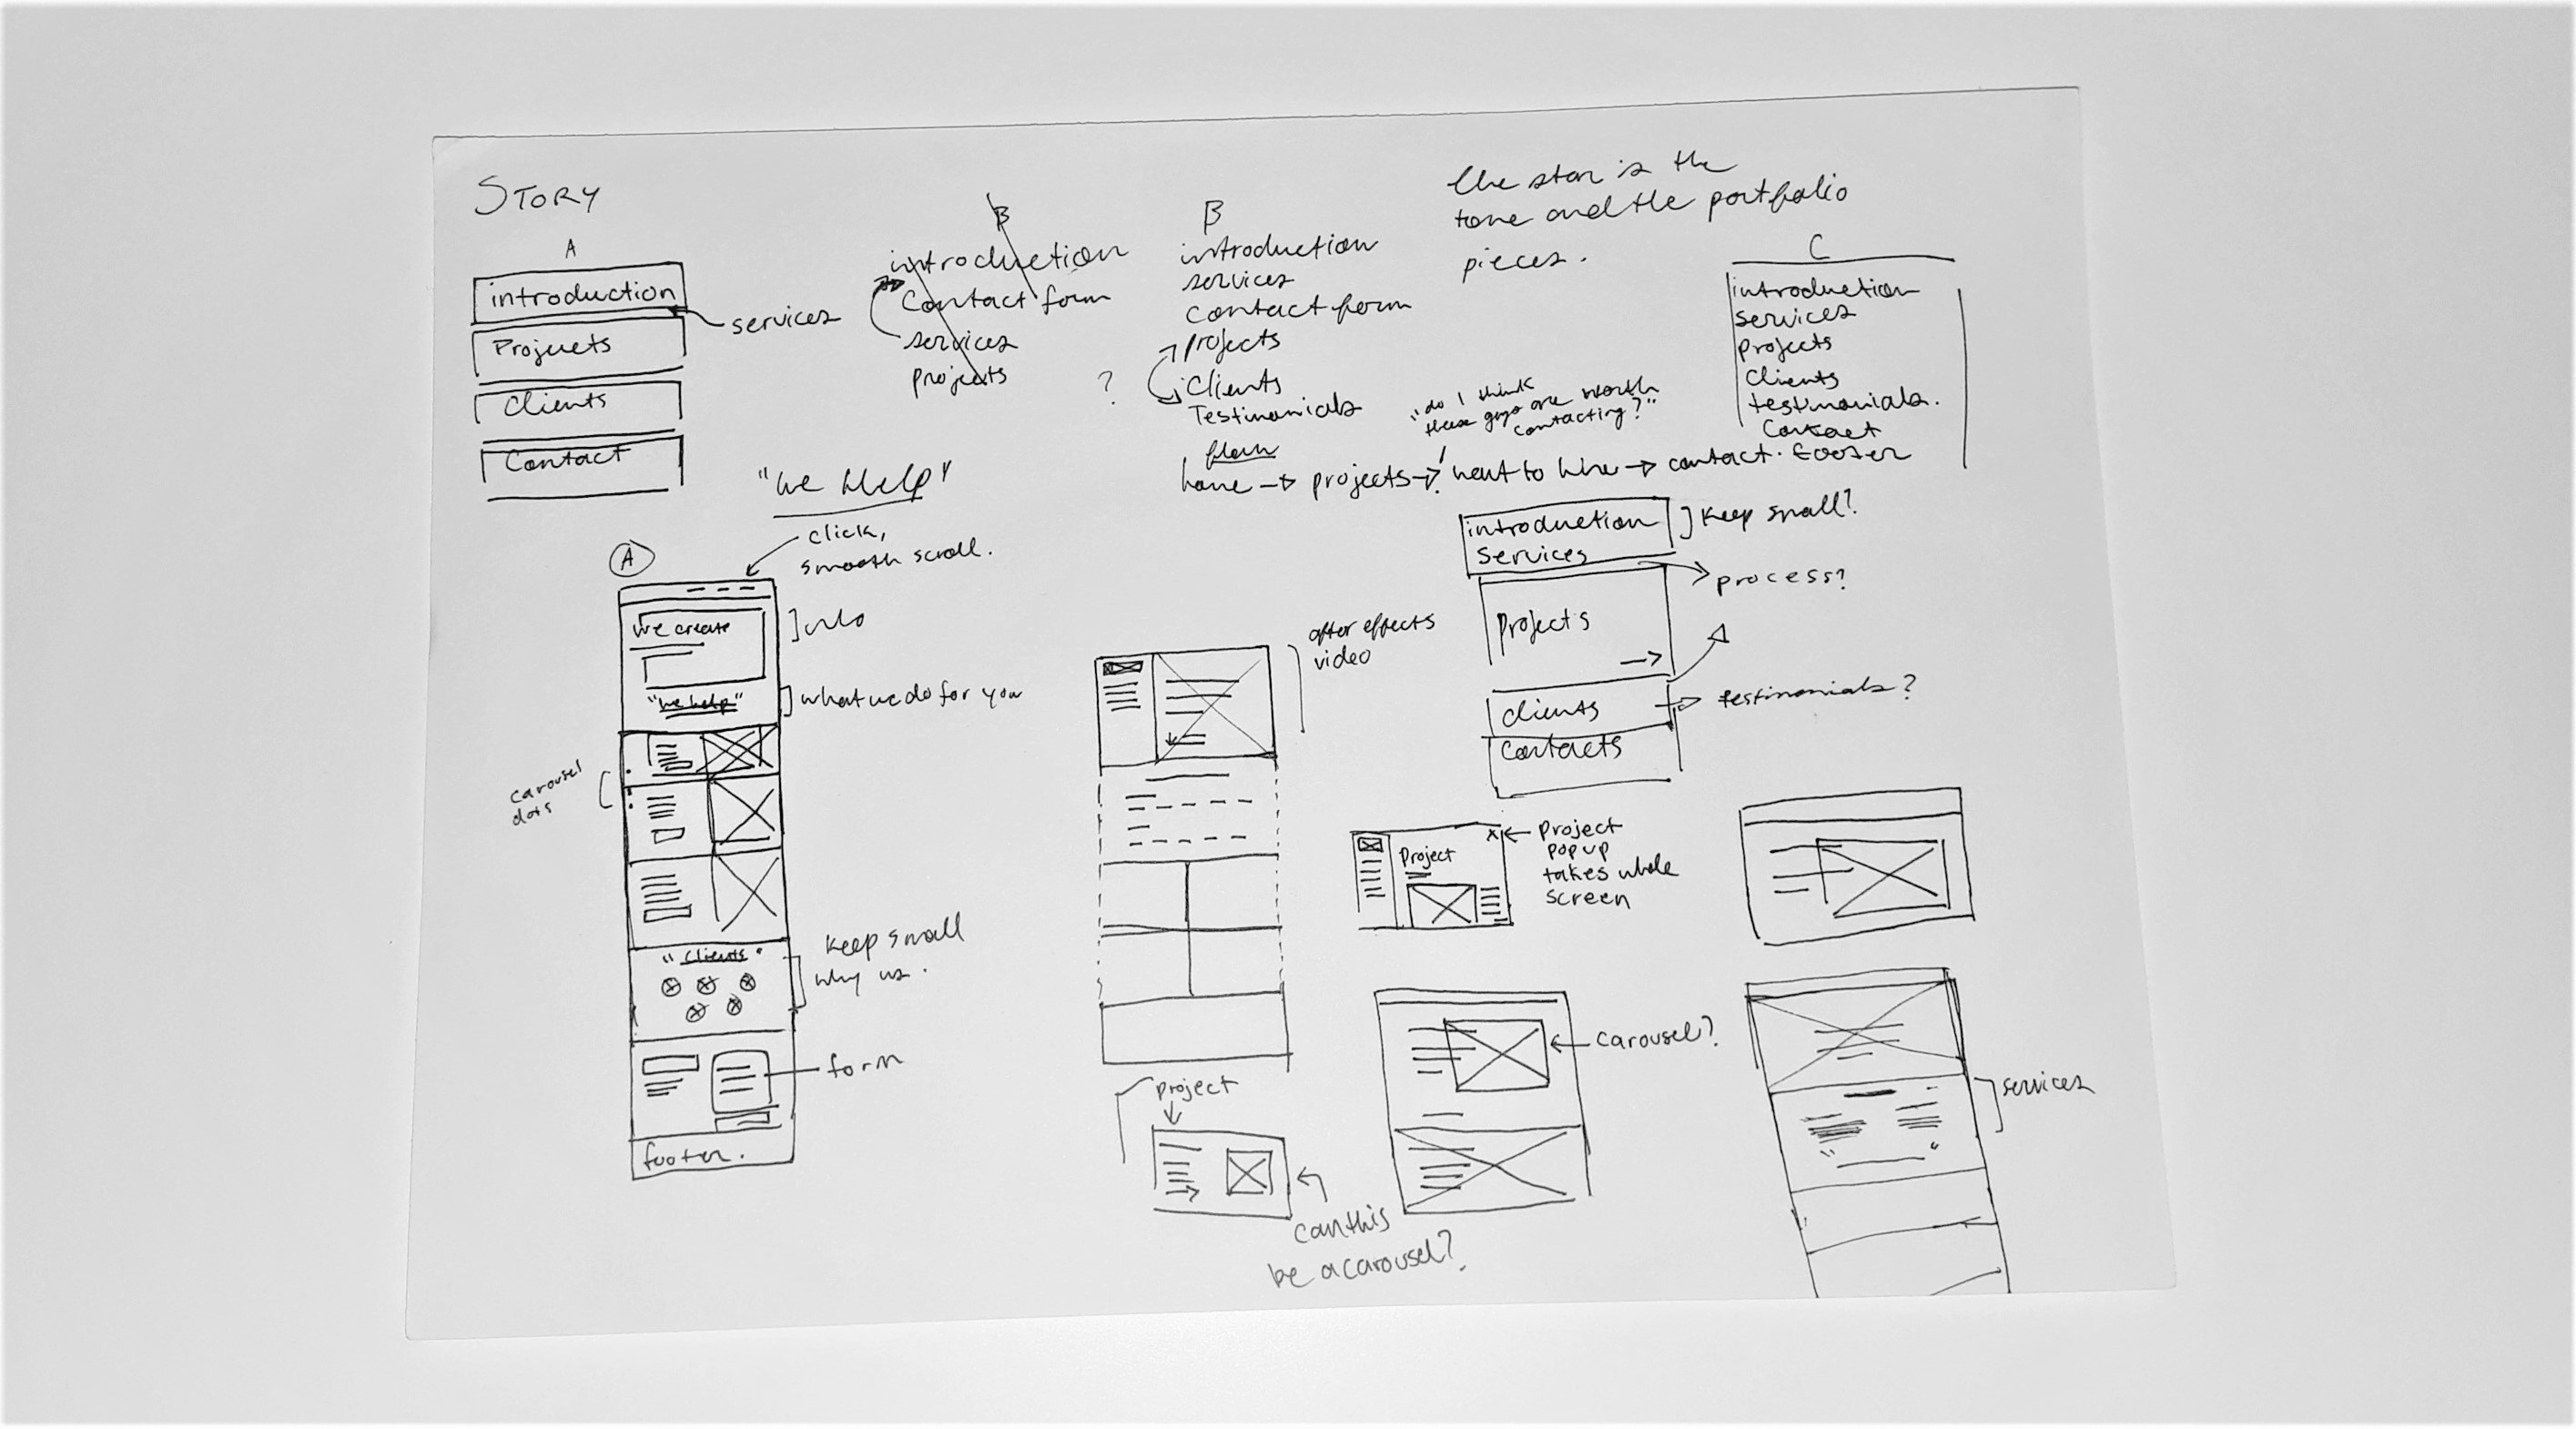 STORY
A
introduction
services
Projuets
Clients
Contact
B
introduction
Contact form
services
projects
?
B
introduction
services
contact form
projects
Clients
Testimonials
The star is the
tone and the portfolio
pieces.
C
introduction
services
projects
Clients
testimonials.
Contact
"do I think
these guys are worth
contacting?"
flow
home → projects → ! want to hire → contact. footer
"we Help"
click,
smooth scroll.
A
we create
] into
"we help"
] what we do for you
carousel
dots
"Clients"
keep small
why us.
form
footer.
after effects
video
introduction
services
] Keep small?
process?
Projects
→
Clients
testimonials?
Contacts
Project
x ← Project
popup
takes whole
screen
Project
can this
be a carousel?
carousel?
services